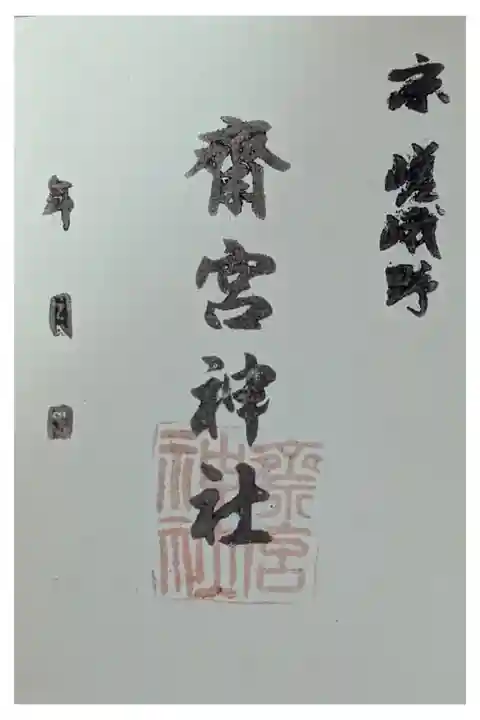 京 嵯峨野
齋宮神社
年 月 日
齋宮
神社